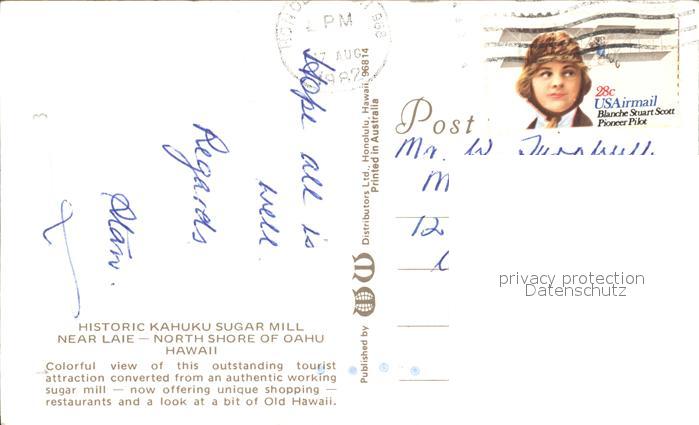 HONOL
PM
7 AUG
1982
968
28c
USAirmail
Blanche Stuart Scott
Pioneer Pilot
Post
Mr. W
M
12
Hope all is
well.
Regards
Alan.
x
Published by
Distributors Ltd., Honolulu, Hawaii 96814
Printed in Australia
HISTORIC KAHUKU SUGAR MILL
NEAR LAIE — NORTH SHORE OF OAHU
HAWAII
Colorful view of this outstanding tourist
attraction converted from an authentic working
sugar mill — now offering unique shopping —
restaurants and a look at a bit of Old Hawaii.
privacy protection
Datenschutz